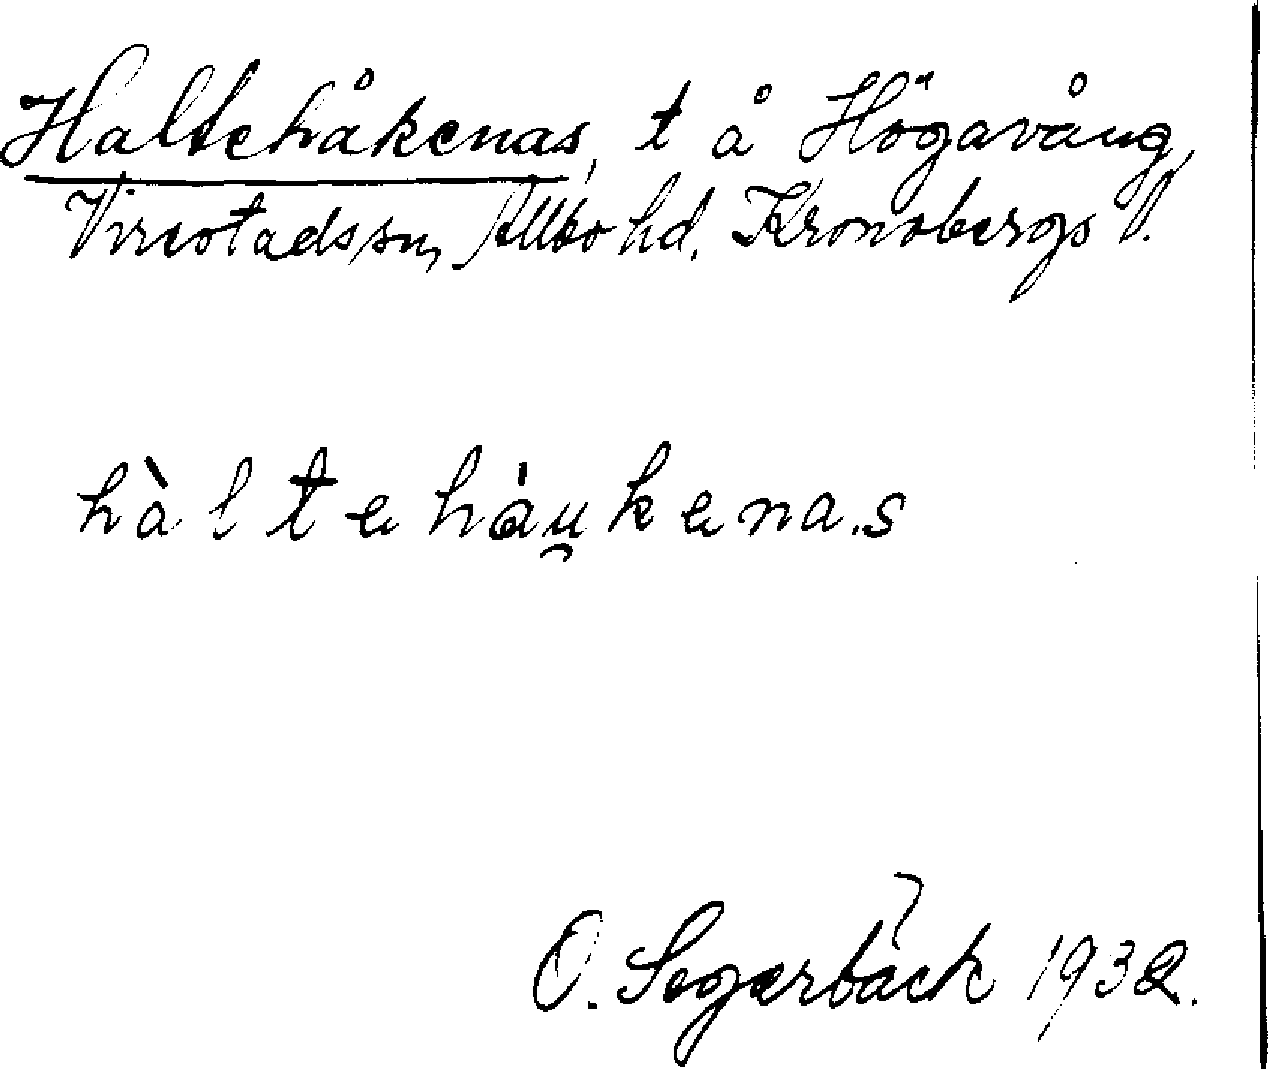 Haltehåkenas, t å Högavång,
Virestads sn, Allbo hd, Kronobergs l.
hàltehàu̯kenas
O. Segerbäck 1932.